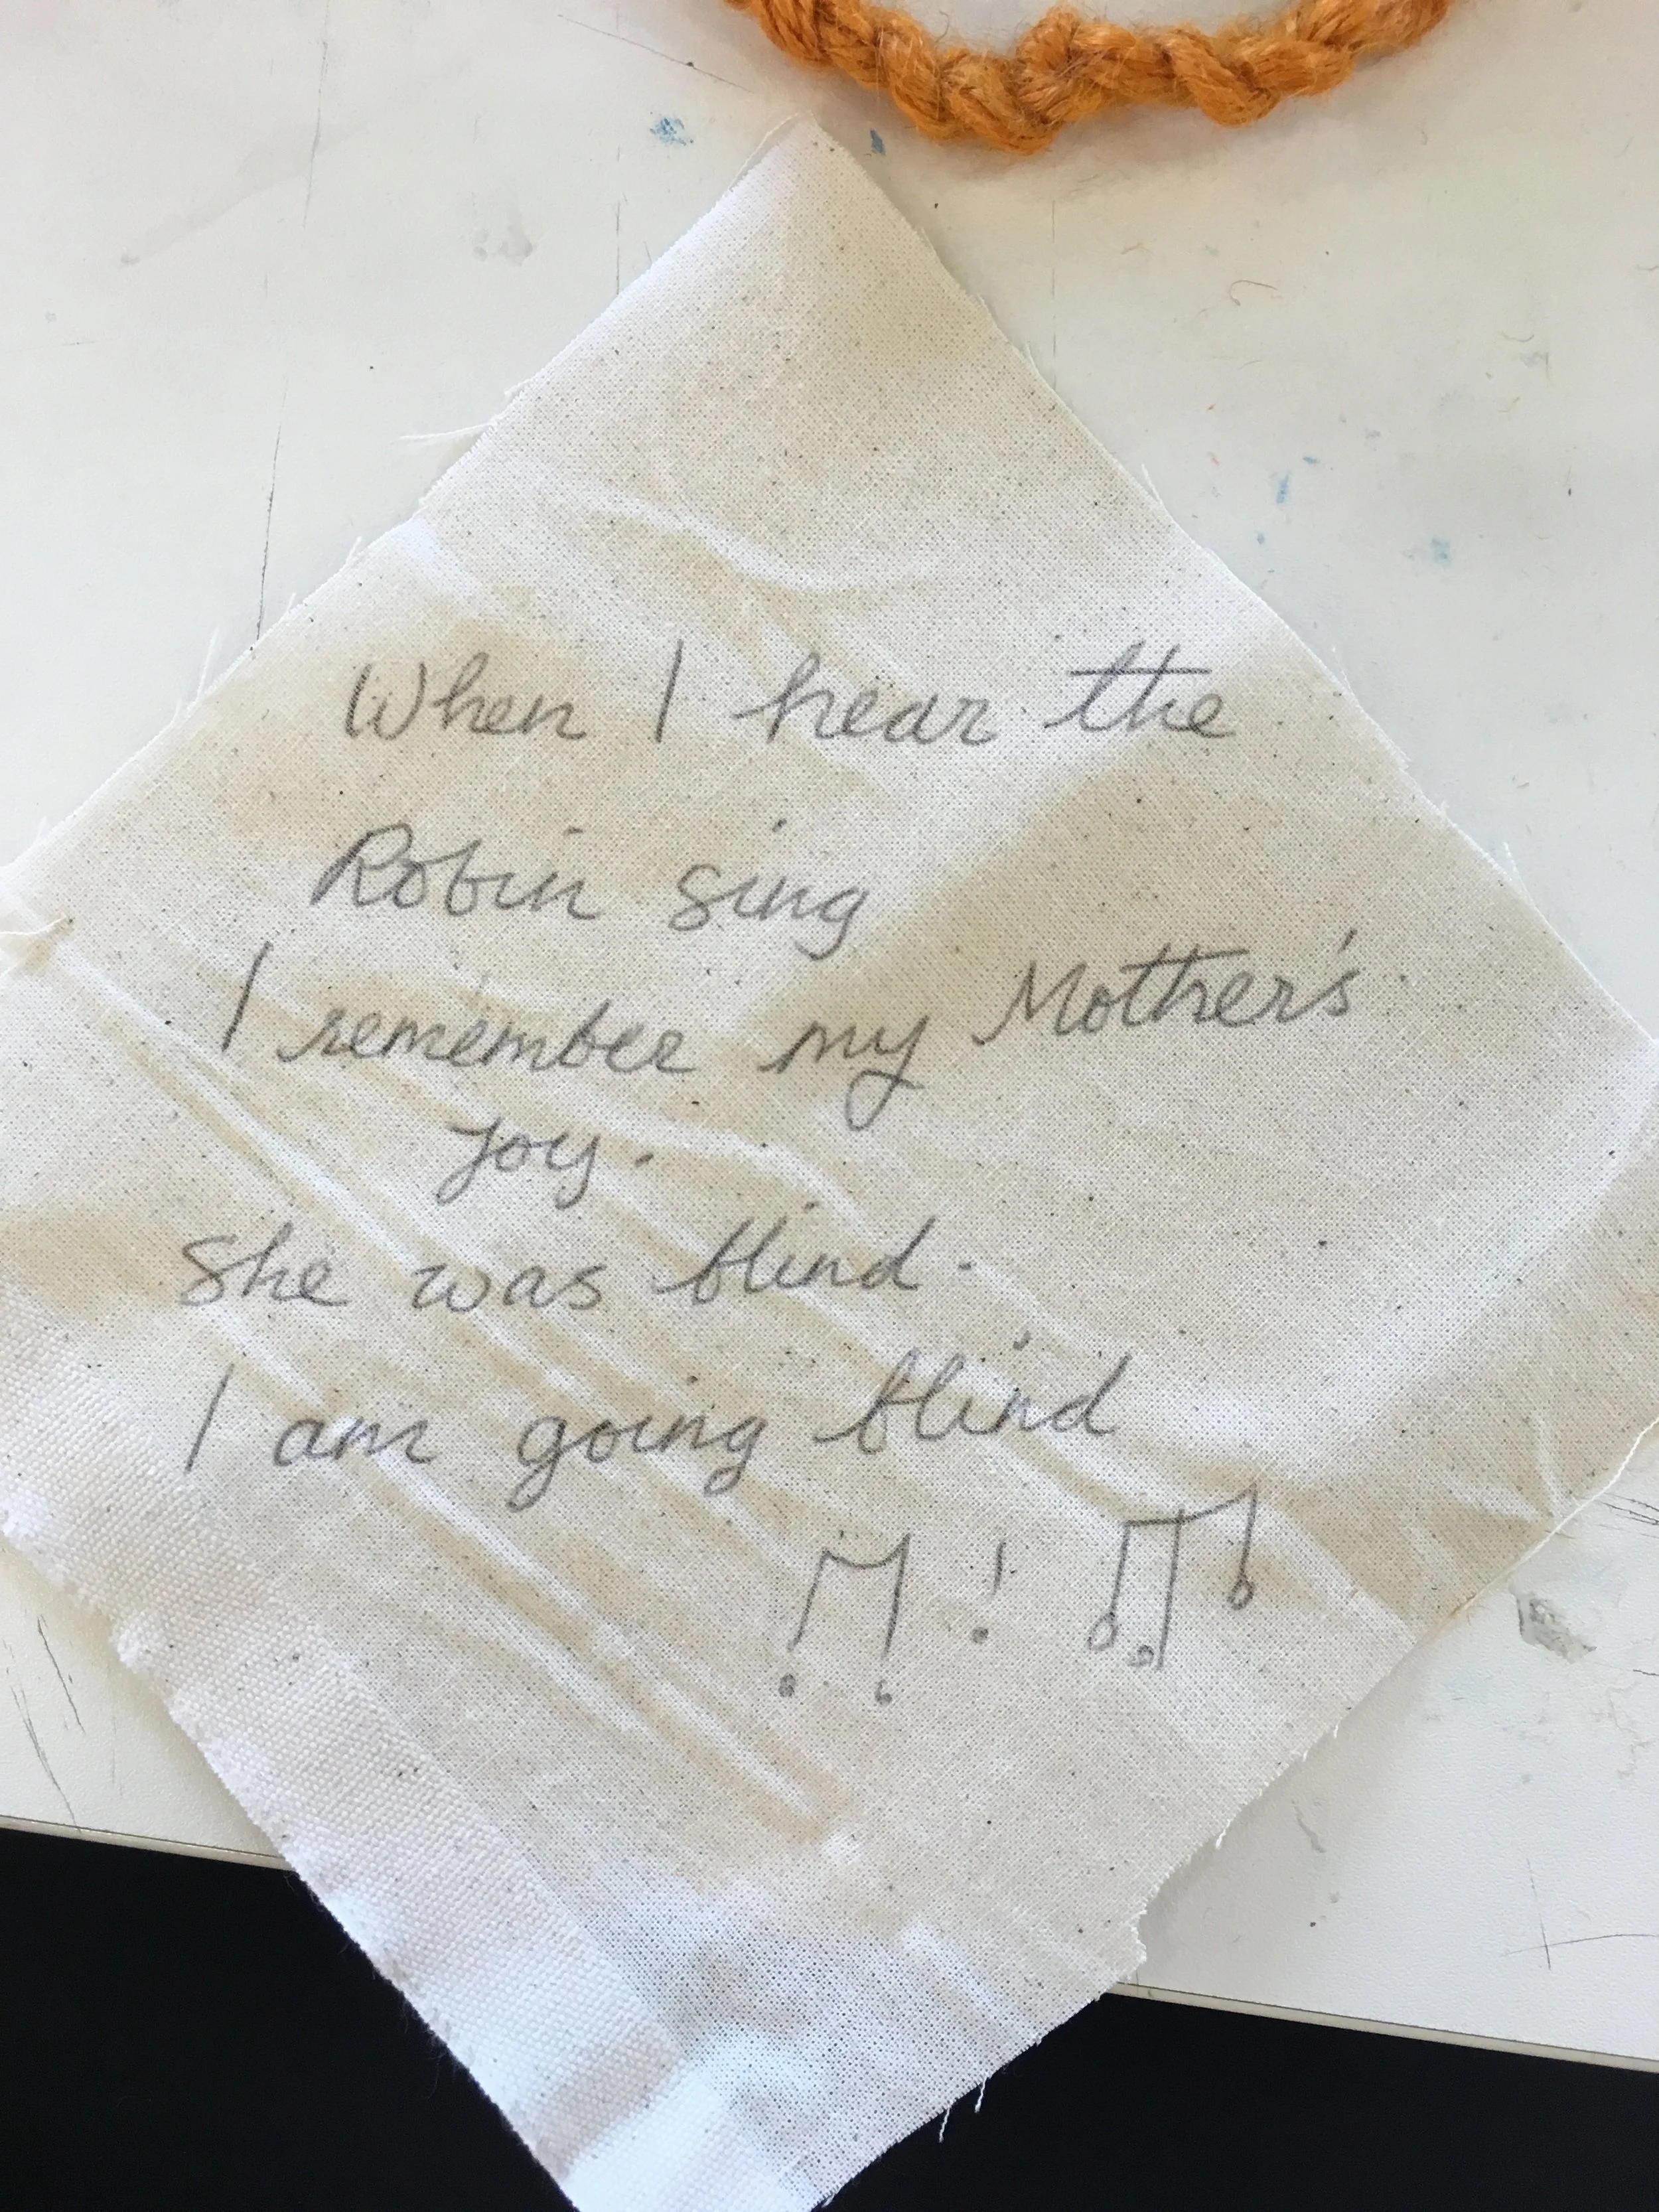 When I hear the
Robin sing
I remember my Mother's
joy.
She was blind.
I am going blind
!